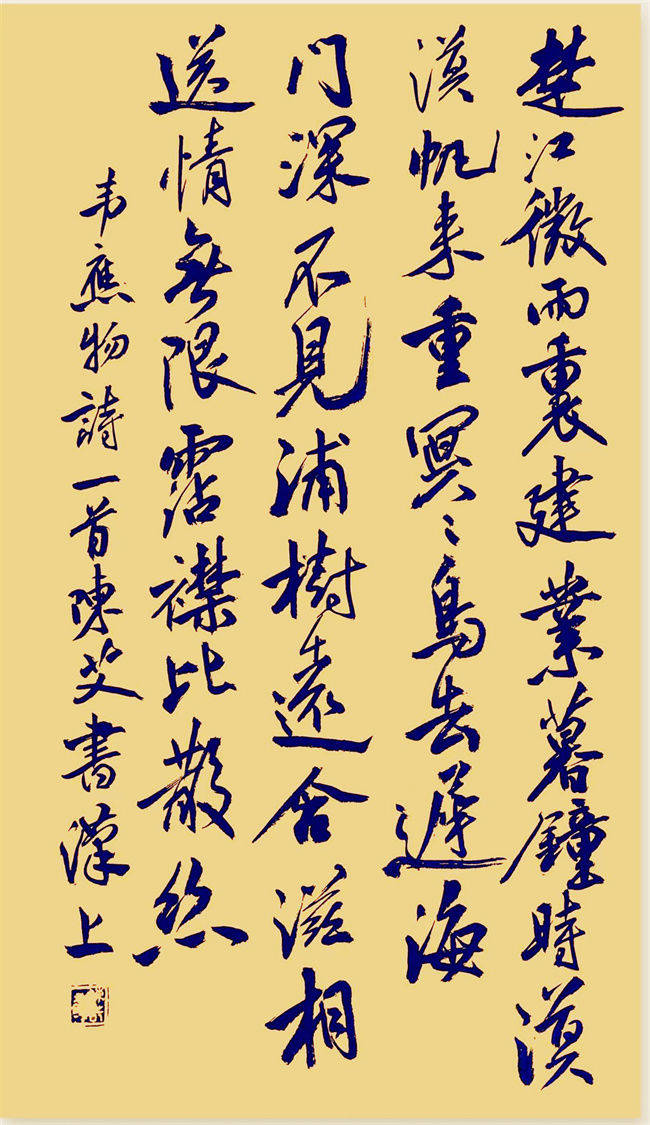 楚江微雨裏建業暮鐘時漠
漠帆来重冥々鳥去遲海
门深不見浦樹遠含滋相
送情無限霑襟比散丝
韦應物詩一首陳艾書漢上